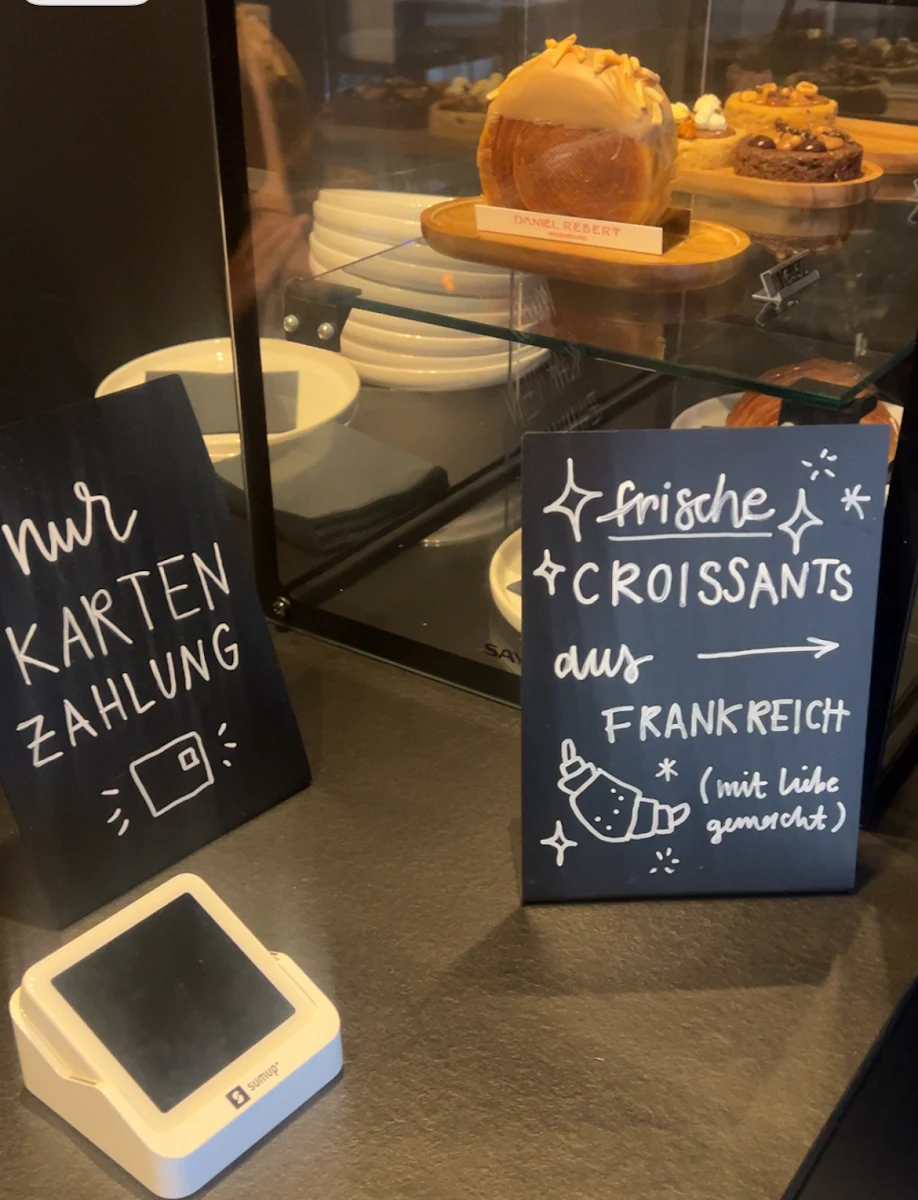 DANIEL REBERT
nur
KARTEN
ZAHLUNG
frische
CROISSANTS
aus
FRANKREICH
(mit Liebe
gemacht)
sumup